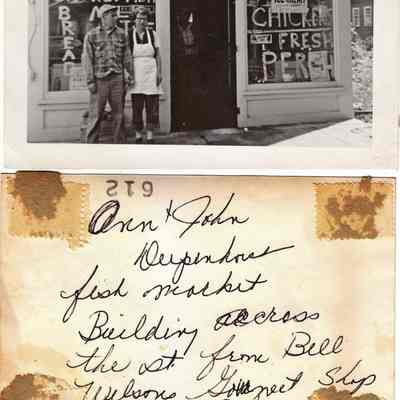 BREAD
MEAT
CHICKEN
FRESH
PERCH
612
Ann + John
Diepenhorst
fish market
Building accross
the st. from Bell
Wilsons Gourmet Shop